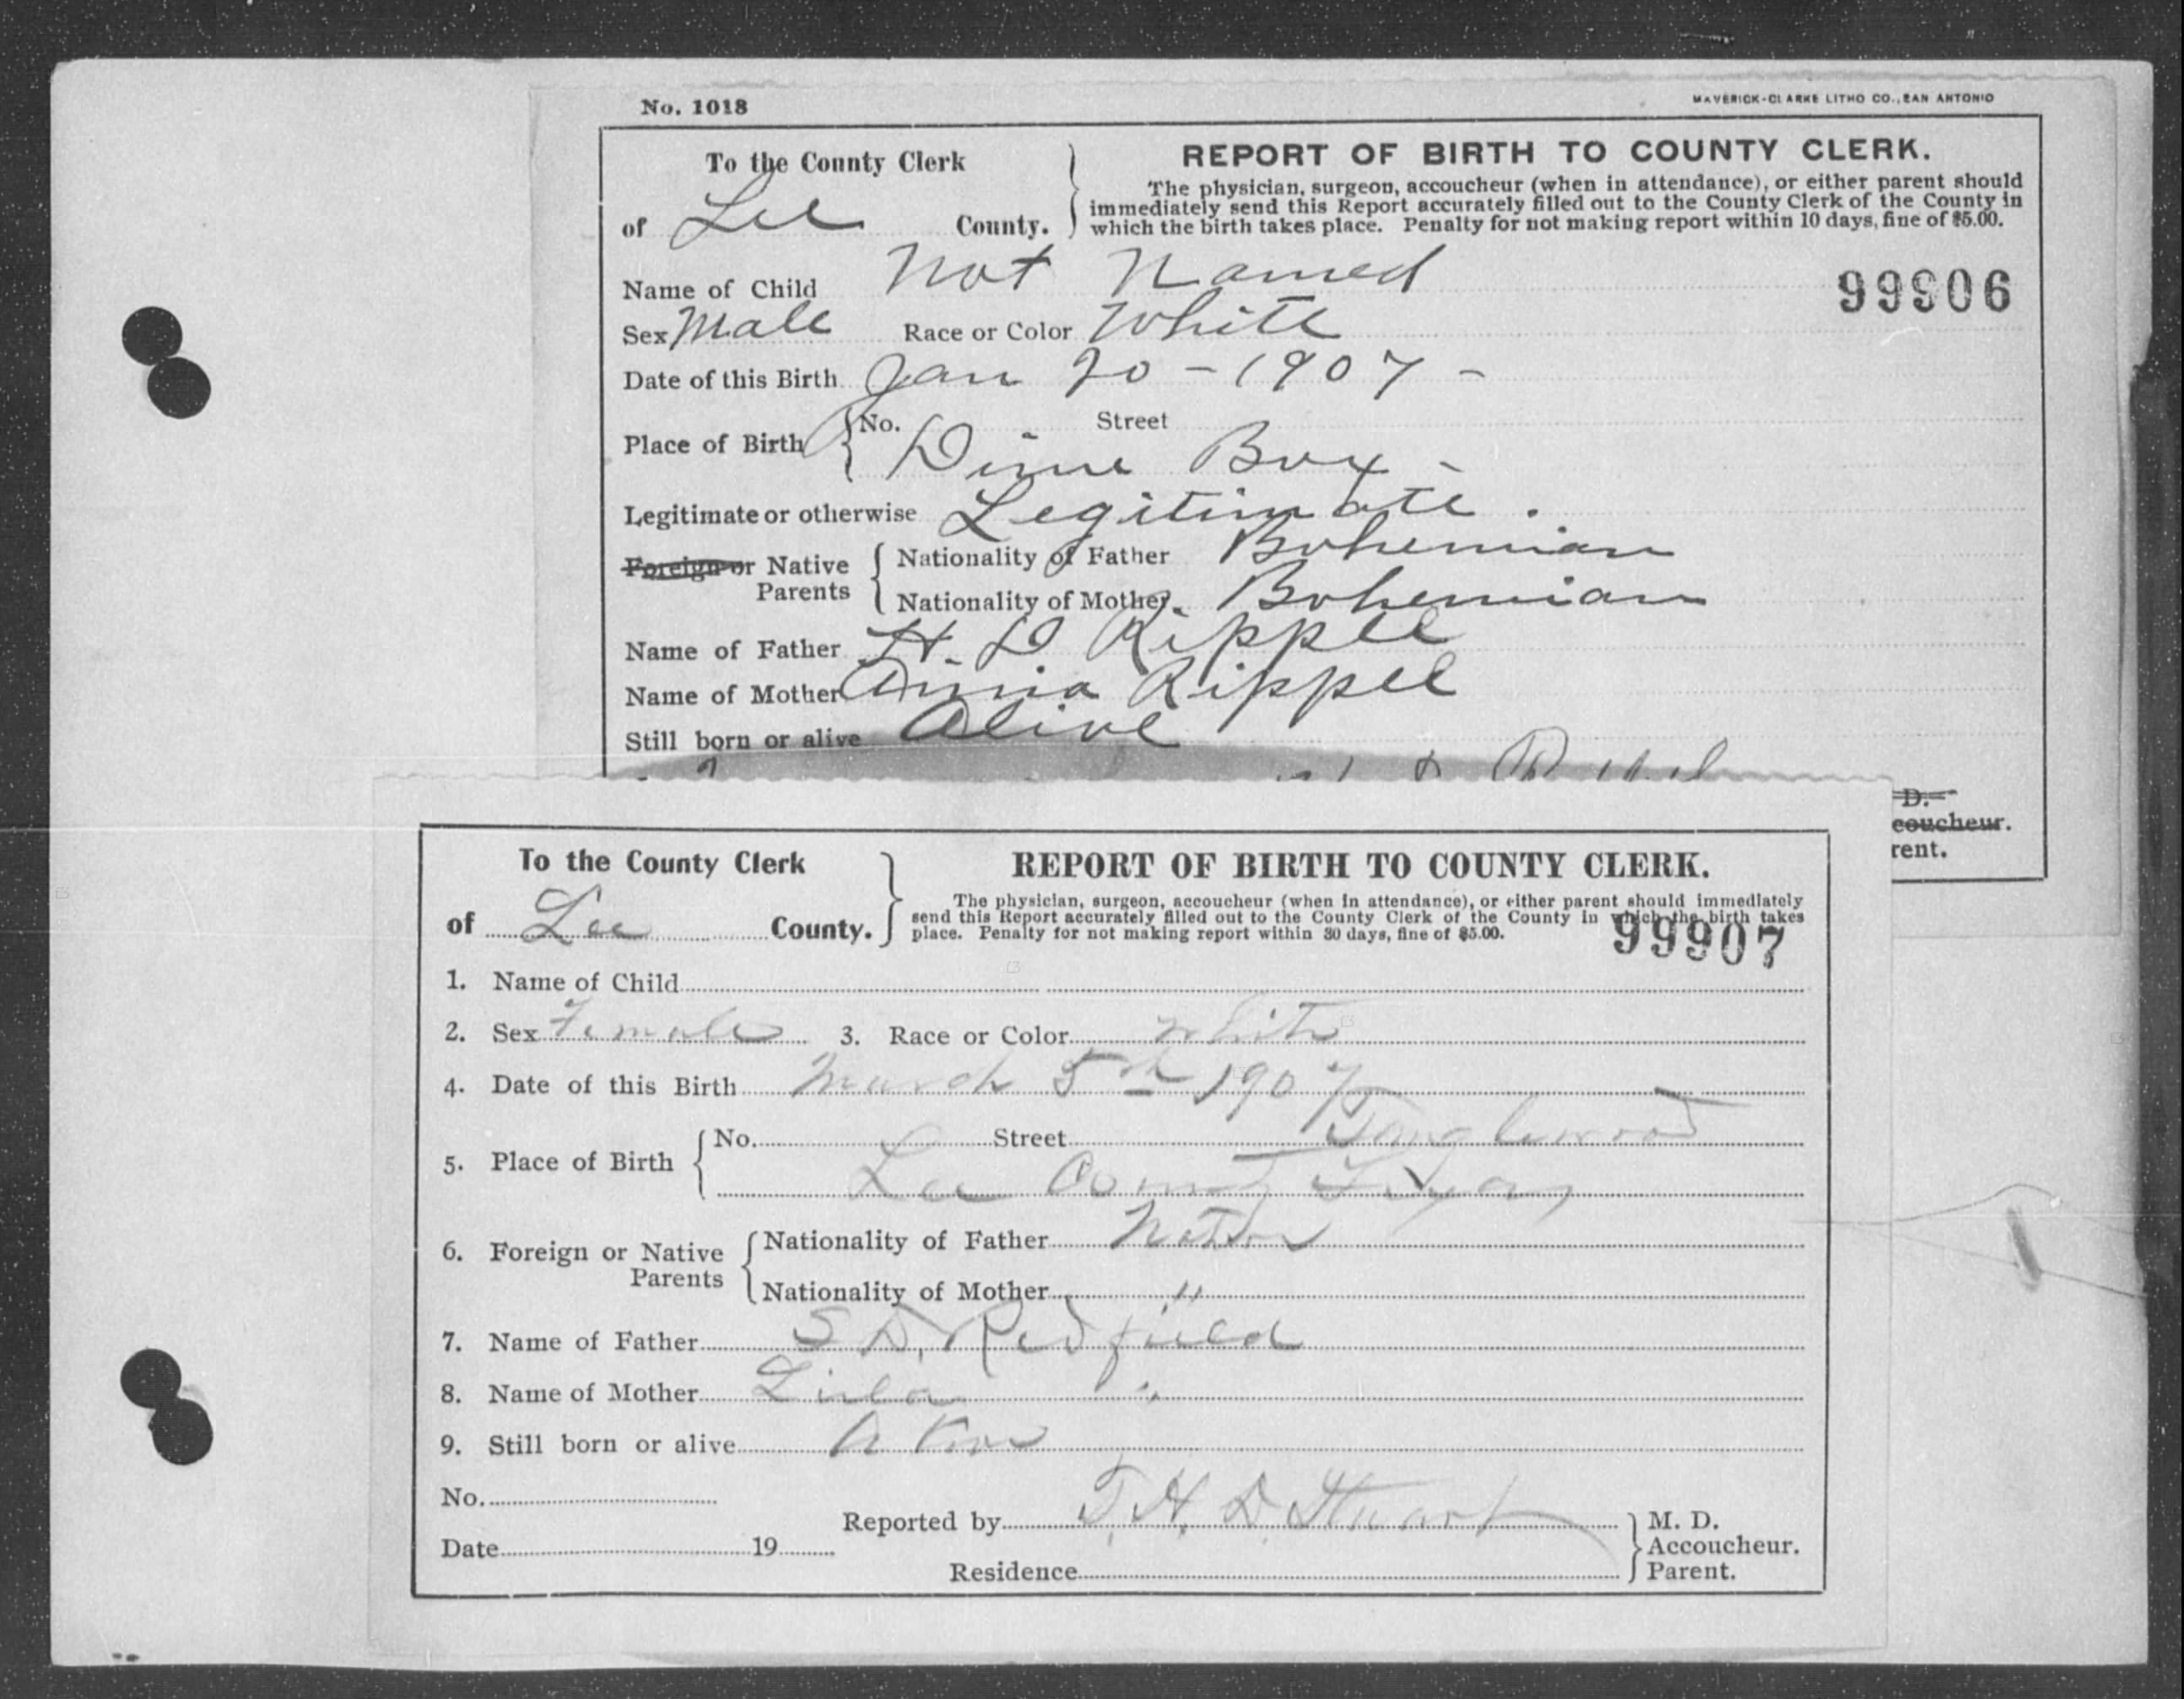 No. 1018
MAVERICK-CLARKE LITHO CO., SAN ANTONIO
To the County Clerk
of Lee County.
REPORT OF BIRTH TO COUNTY CLERK.
The physician, surgeon, accoucheur (when in attendance), or either parent should
immediately send this Report accurately filled out to the County Clerk of the County in
which the birth takes place. Penalty for not making report within 10 days, fine of $5.00.
Name of Child Not Named
99906
Sex Male Race or Color White
Date of this Birth Jan 20 - 1907 -
Place of Birth No. Street
Dime Box -
Legitimate or otherwise Legitimate.
Foreign or Native Parents
Nationality of Father Bohemian
Nationality of Mother Bohemian
Name of Father H. D Rippel
Name of Mother Annia Rippel
Still born or alive Alive
D.
coucheur.
rent.
To the County Clerk
of Lee County.
REPORT OF BIRTH TO COUNTY CLERK.
The physician, surgeon, accoucheur (when in attendance), or either parent should immediately
send this Report accurately filled out to the County Clerk of the County in which the birth takes
place. Penalty for not making report within 30 days, fine of $5.00.
99907
1. Name of Child
2. Sex Female 3. Race or Color White
4. Date of this Birth March 5th 1907
5. Place of Birth No. Street Tanglewood
Lee County Texas
6. Foreign or Native Parents
Nationality of Father Native
Nationality of Mother "
7. Name of Father S D. Redfield
8. Name of Mother Lula "
9. Still born or alive
No.
Reported by T. H. D. Stuart M. D.
Date 19 Accoucheur.
Residence Parent.